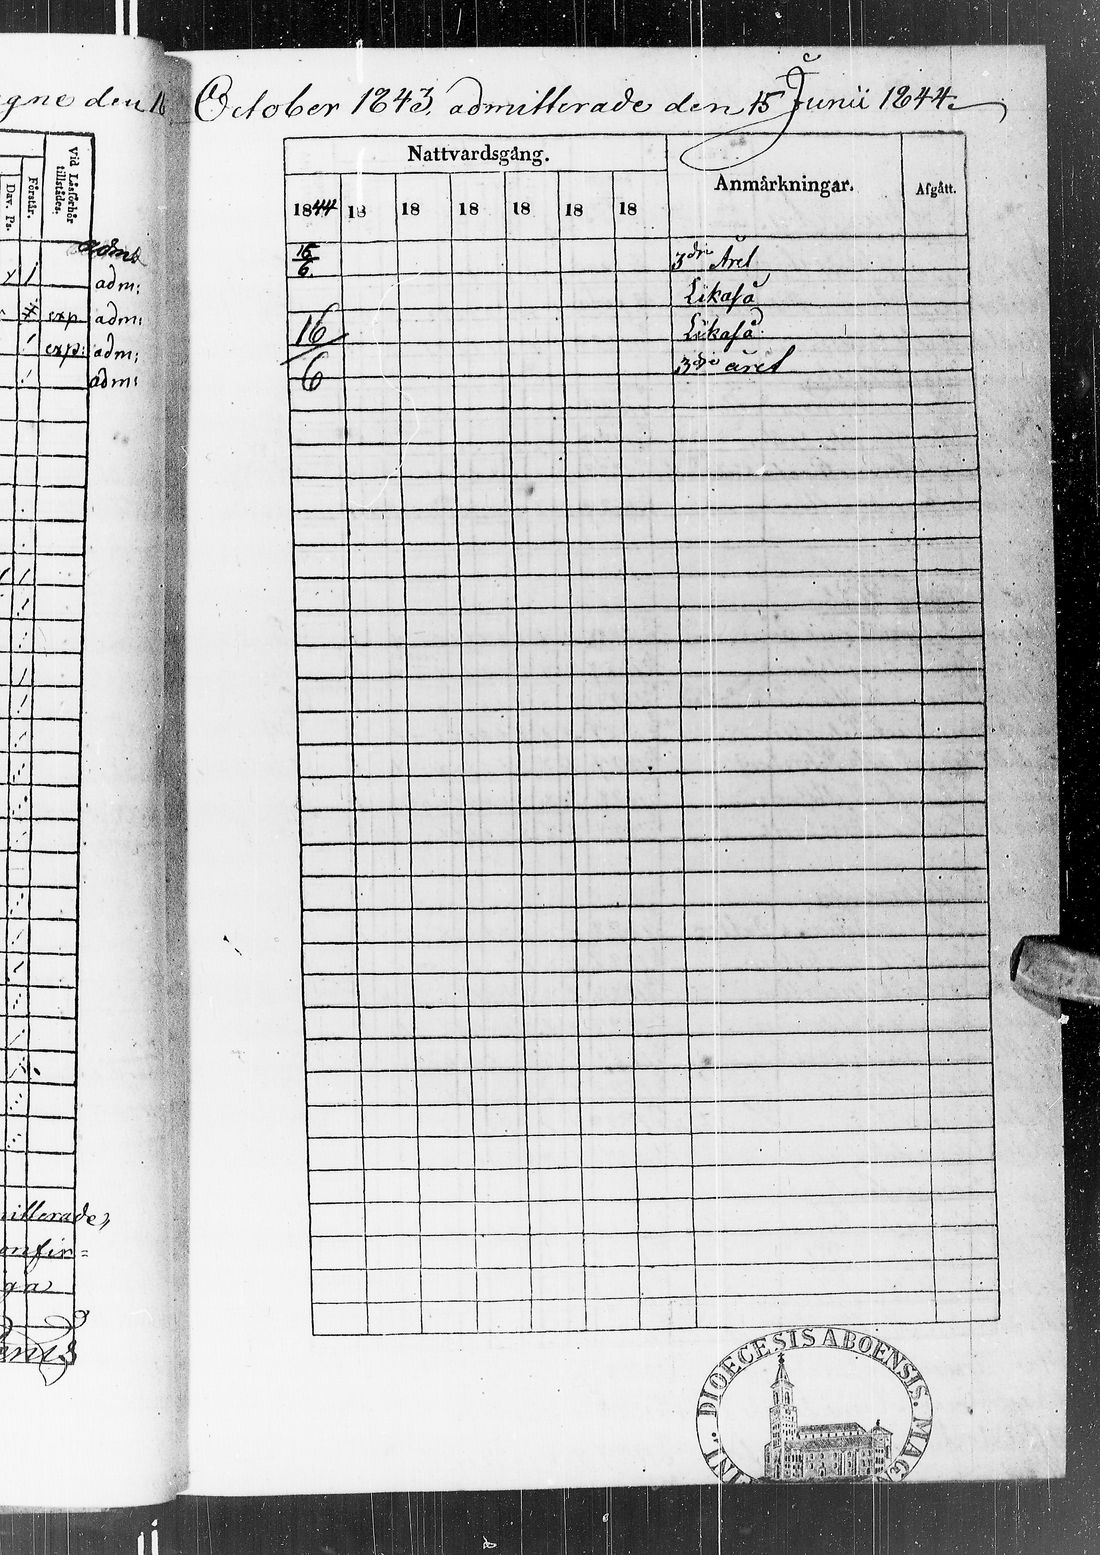 den 16 October 1843, admitterade den 15 Junii 1844.
Dav. Ps.
Förstår.
Vid Läsförhör tillstådes.
adm:
adm:
exp. adm:
exp: adm:
adm:
Nattvardsgång.
Anmärkningar.
Afgått.
1844 18 18 18 18 18 18
15/6. 3dri Året
Likaså
16/6 Likaså
3dje året
DIOECESIS ABOENSIS. MAG